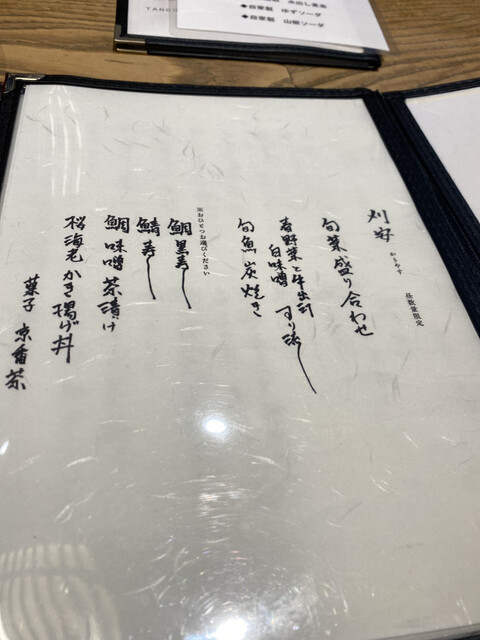 TANGO
◆自家製 ゆずソーダ
◆自家製 山椒ソーダ
刈安 かりやす 昼数量限定
旬菜盛り合わせ
春野菜と牛出汁
白味噌 すり流し
旬魚炭焼き
※おひとつお選びください
鯛黒寿し
鯖寿し
鯛味噌茶漬け
桜海老かき揚げ丼
菓子 京番茶